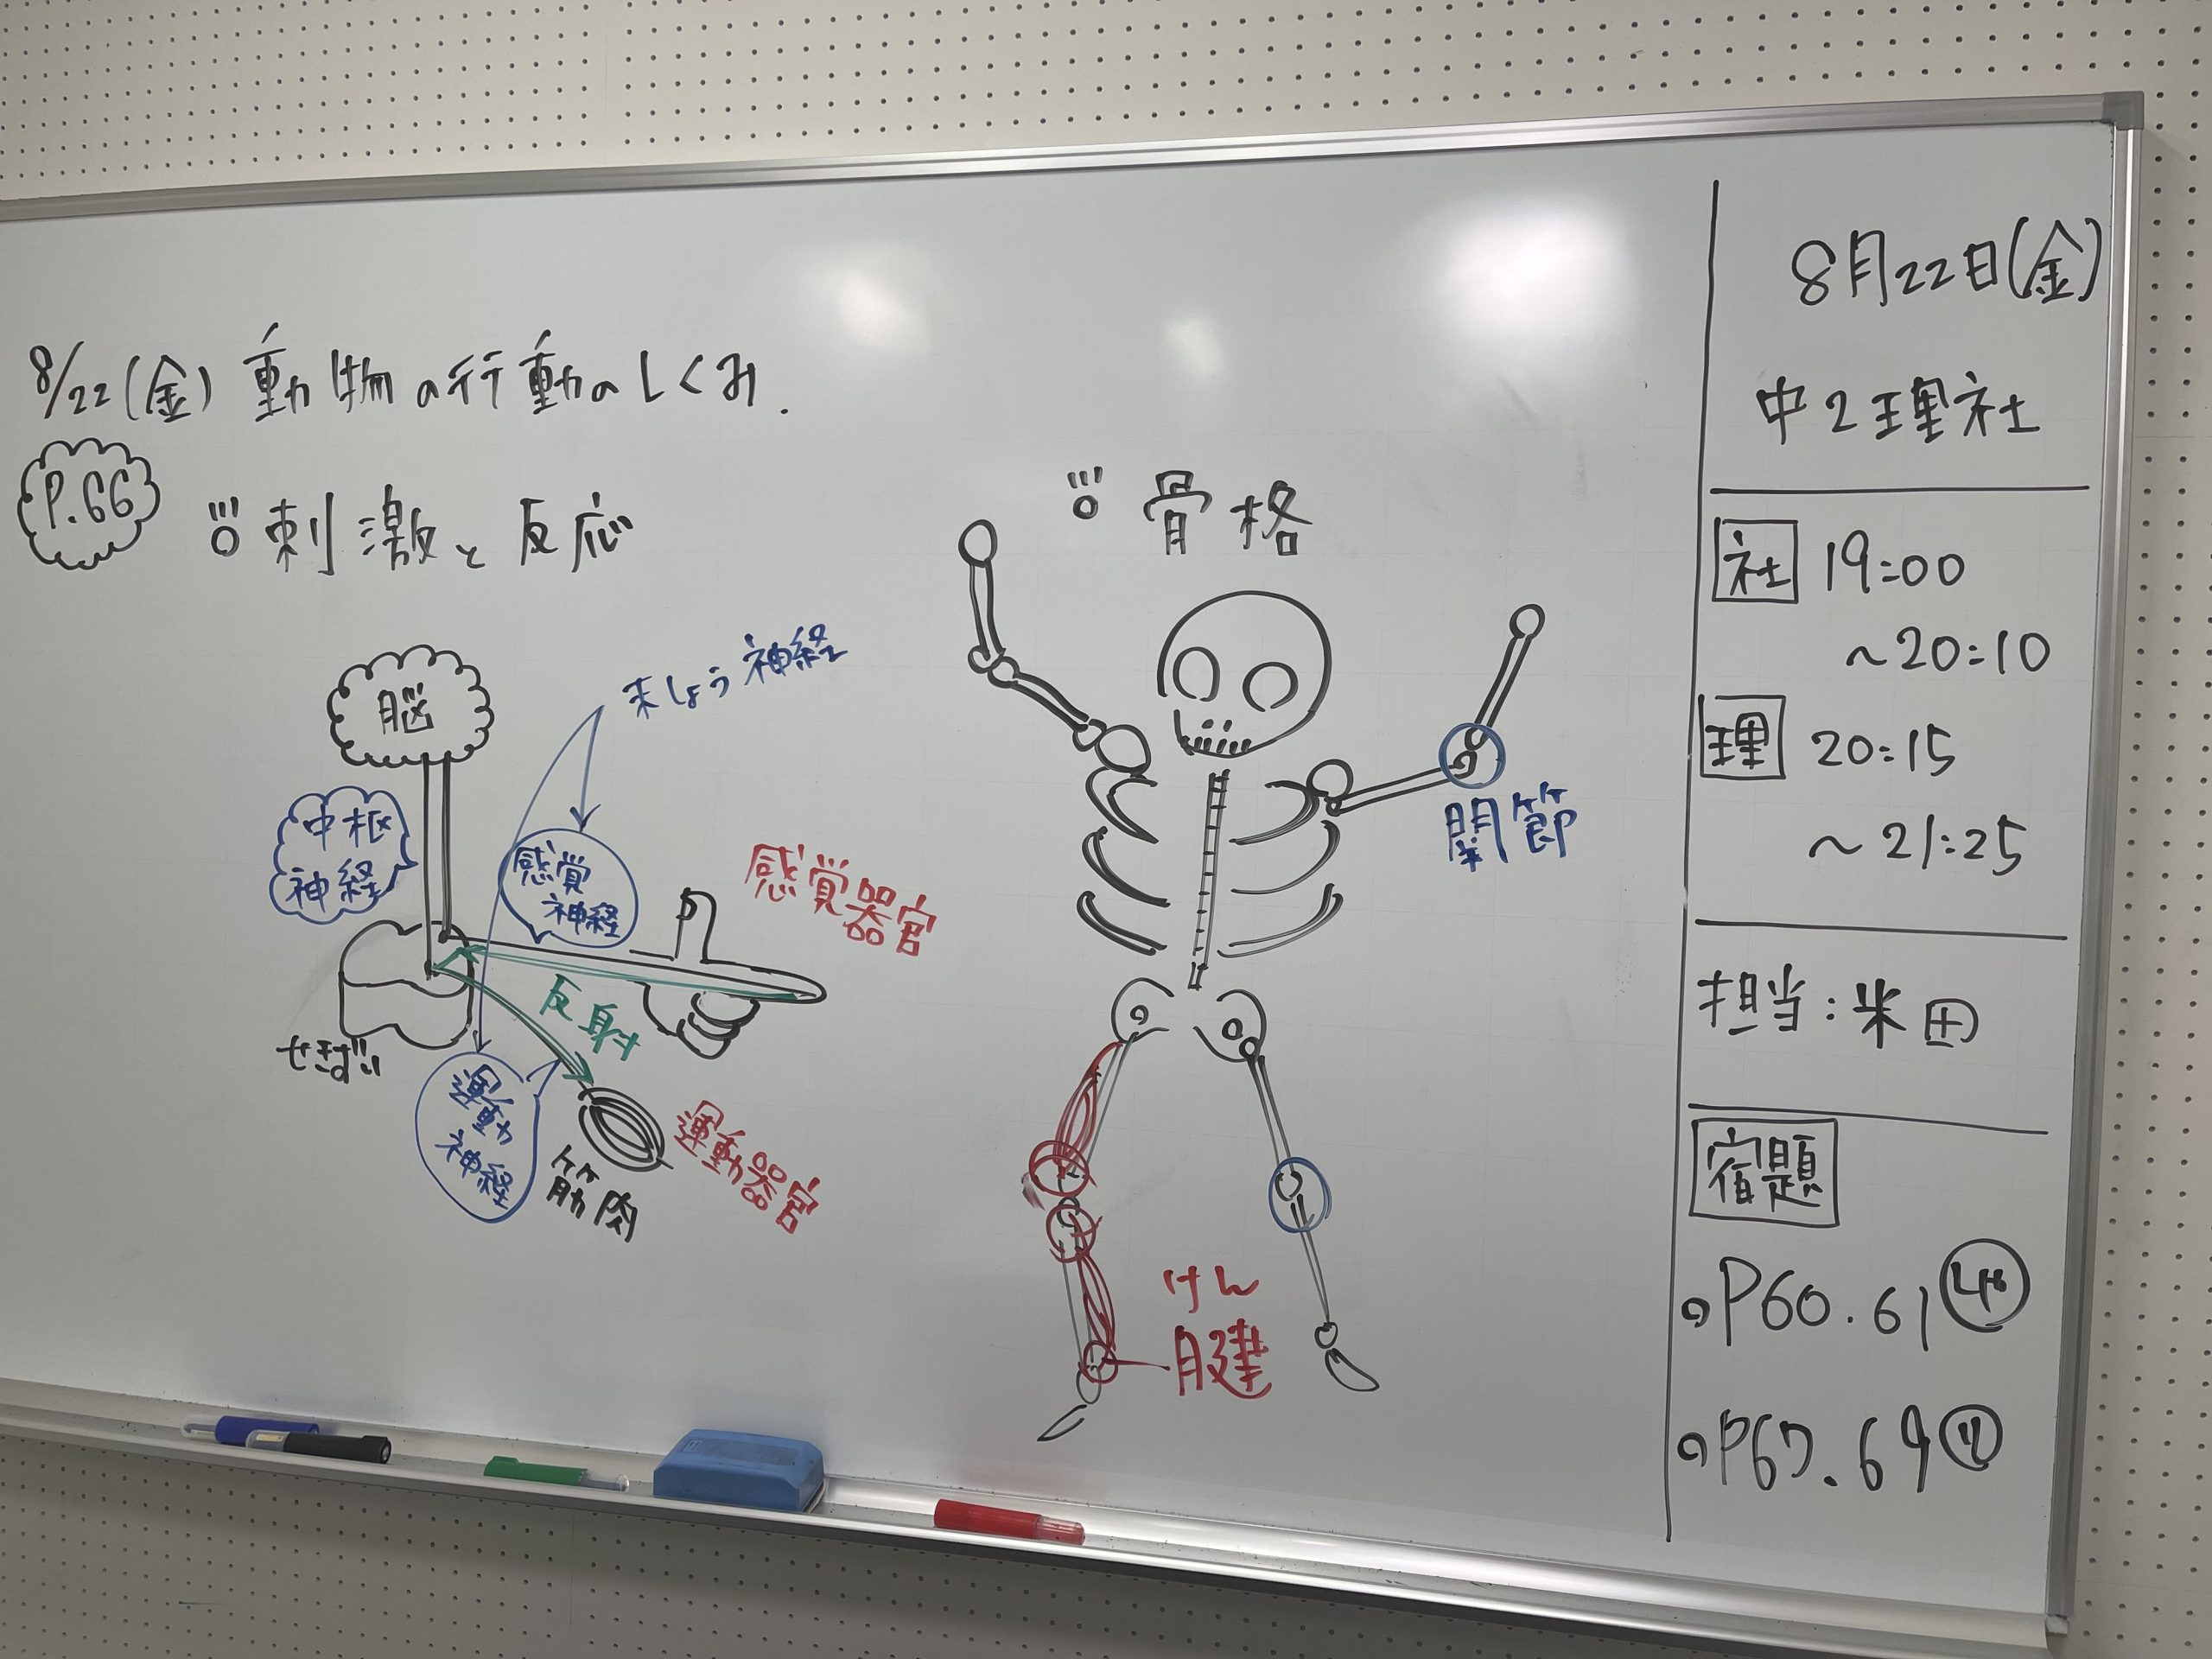 8/22(金) 動物の行動のしくみ.
P.66
刺激と反応
脳
中枢
神経
末しょう神経
感覚
神経
感覚器官
反射
せきずい
運動
神経
筋肉
運動器官
骨格
関節
けん
腱
8月22日(金)
中2理社
社 19:00
～20:10
理 20:15
～21:25
担当:米田
宿題
P60.61
P67.69